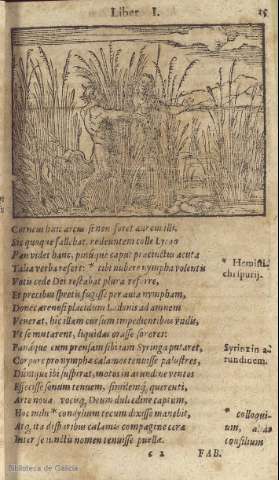 Liber I. 15
Corneus huic arcus si non foret aureus illi.
Sic quoque fallebat. redeuntem colle Lycæo
Pan videt hanc, pinuque caput præcinctus acuta
Talia verba refert: * tibi nubere nympha volentis
Votis cede Dei restabat plura referre,
Et precibus spretis fugisse per auia nympham,
Donec arenosi placidum Ladonis ad amnem
Venerat, hic illam cursum impedientibus vndis,
Vt se mutarent, liquidas orasse sorores:
Panáque cum prensam sibi iam Syringa putaret,
Corpore pro nymphæ calamos tenuisse palustres,
Dumque ibi suspirat, motos in arundine ventos
Effecisse sonum tenuem, similemque querenti,
Arte noua vocisque Deum dulcedine captum,
Hoc mihi * concilium tecum dixisse manebit,
Atque ita disparibus calamis compagine ceræ
Inter se iunctis nomen tenuisse puellæ.
* Hemisti-
chi purij.
Syrinx in a-
rundinem.
* colloqui-
um, aliàs
consilium
c 2 FAB.
Biblioteca de Galicia